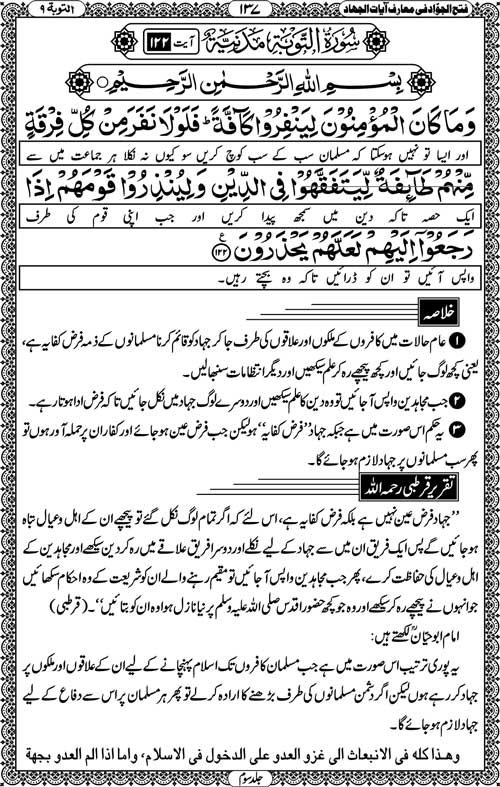 فتح الجوّاد فی معارف آیات الجهاد ۱۳۷ التوبة ۹
سُورَةُ التَّوبَةِ مَدَنِيَّةٌ آیت ۱۲۲
بِسْمِ اللهِ الرَّحْمٰنِ الرَّحِيْمِ
وَمَا كَانَ الْمُؤْمِنُوْنَ لِيَنْفِرُوْا كَآفَّةً ؕ فَلَوْلَا نَفَرَ مِنْ كُلِّ فِرْقَةٍ
اور ایسا تو نہیں ہوسکتا کہ مسلمان سب کے سب کوچ کریں سو کیوں نہ نکلا ہر جماعت میں سے
مِّنْهُمْ طَآئِفَةٌ لِّيَتَفَقَّهُوْا فِی الدِّيْنِ وَ لِيُنْذِرُوْا قَوْمَهُمْ اِذَا
ایک حصہ تاکہ دین میں سمجھ پیدا کریں اور جب اپنی قوم کی طرف
رَجَعُوْۤا اِلَيْهِمْ لَعَلَّهُمْ يَحْذَرُوْنَ ﴿۱۲۲﴾ ع
واپس آئیں تو ان کو ڈرائیں تاکہ وہ بچتے رہیں۔
خلاصہ
۱ عام حالات میں کافروں کے ملکوں اور علاقوں کی طرف جا کر جہاد کو قائم کرنا مسلمانوں کے ذمہ فرض کفایہ ہے،
یعنی کچھ لوگ جائیں اور کچھ پیچھے رہ کر علم سیکھیں اور دیگر انتظامات سنبھالیں۔
۲ جب مجاہدین واپس آجائیں تو وہ دین کا علم سیکھیں اور دوسرے لوگ جہاد میں نکل جائیں تاکہ فرض ادا ہوتا رہے۔
۳ یہ حکم اس صورت میں ہے جبکہ جہاد ’’فرض کفایہ‘‘ ہو لیکن جب فرض عین ہوجائے اور کفار ان پر حملہ آور ہوں تو
پھر سب مسلمانوں پر جہاد لازم ہوجائے گا۔
تقریر قرطبی رحمہ اللہ
’’جہاد فرض عین نہیں ہے بلکہ فرض کفایہ ہے، اس لئے کہ اگر تمام لوگ نکل گئے تو پیچھے ان کے اہل وعیال تباہ
ہوجائیں گے پس ایک فریق ان میں سے جہاد کے لیے نکلے اور دوسرا فریق علاقے میں رہ کر دین سیکھے اور مجاہدین کے
اہل وعیال کی حفاظت کرے، پھر جب مجاہدین واپس آجائیں تو مقیم رہنے والے ان کو شریعت کے وہ احکام سکھائیں
جو انہوں نے پیچھے رہ کر سیکھے اور وہ جو کچھ حضور اقدس صلی اللہ علیہ وسلم پر نیا نازل ہوا وہ ان کو بتائیں‘‘۔ (قرطبی)
امام ابو حیانؒ لکھتے ہیں:
یہ پوری ترتیب اس صورت میں ہے جب مسلمان کافروں تک اسلام پہنچانے کے لیے ان کے علاقوں اور ملکوں پر
جہاد کر رہے ہوں لیکن اگر دشمن مسلمانوں کی طرف بڑھنے کا ارادہ کرلے تو پھر ہر مسلمان پر اس سے دفاع کے لیے
جہاد لازم ہوجائے گا۔
وهذا كله فی الانبعاث الی غزو العدو علی الدخول فی الاسلام، واما اذا الم العدو بجهة
جلد سوم